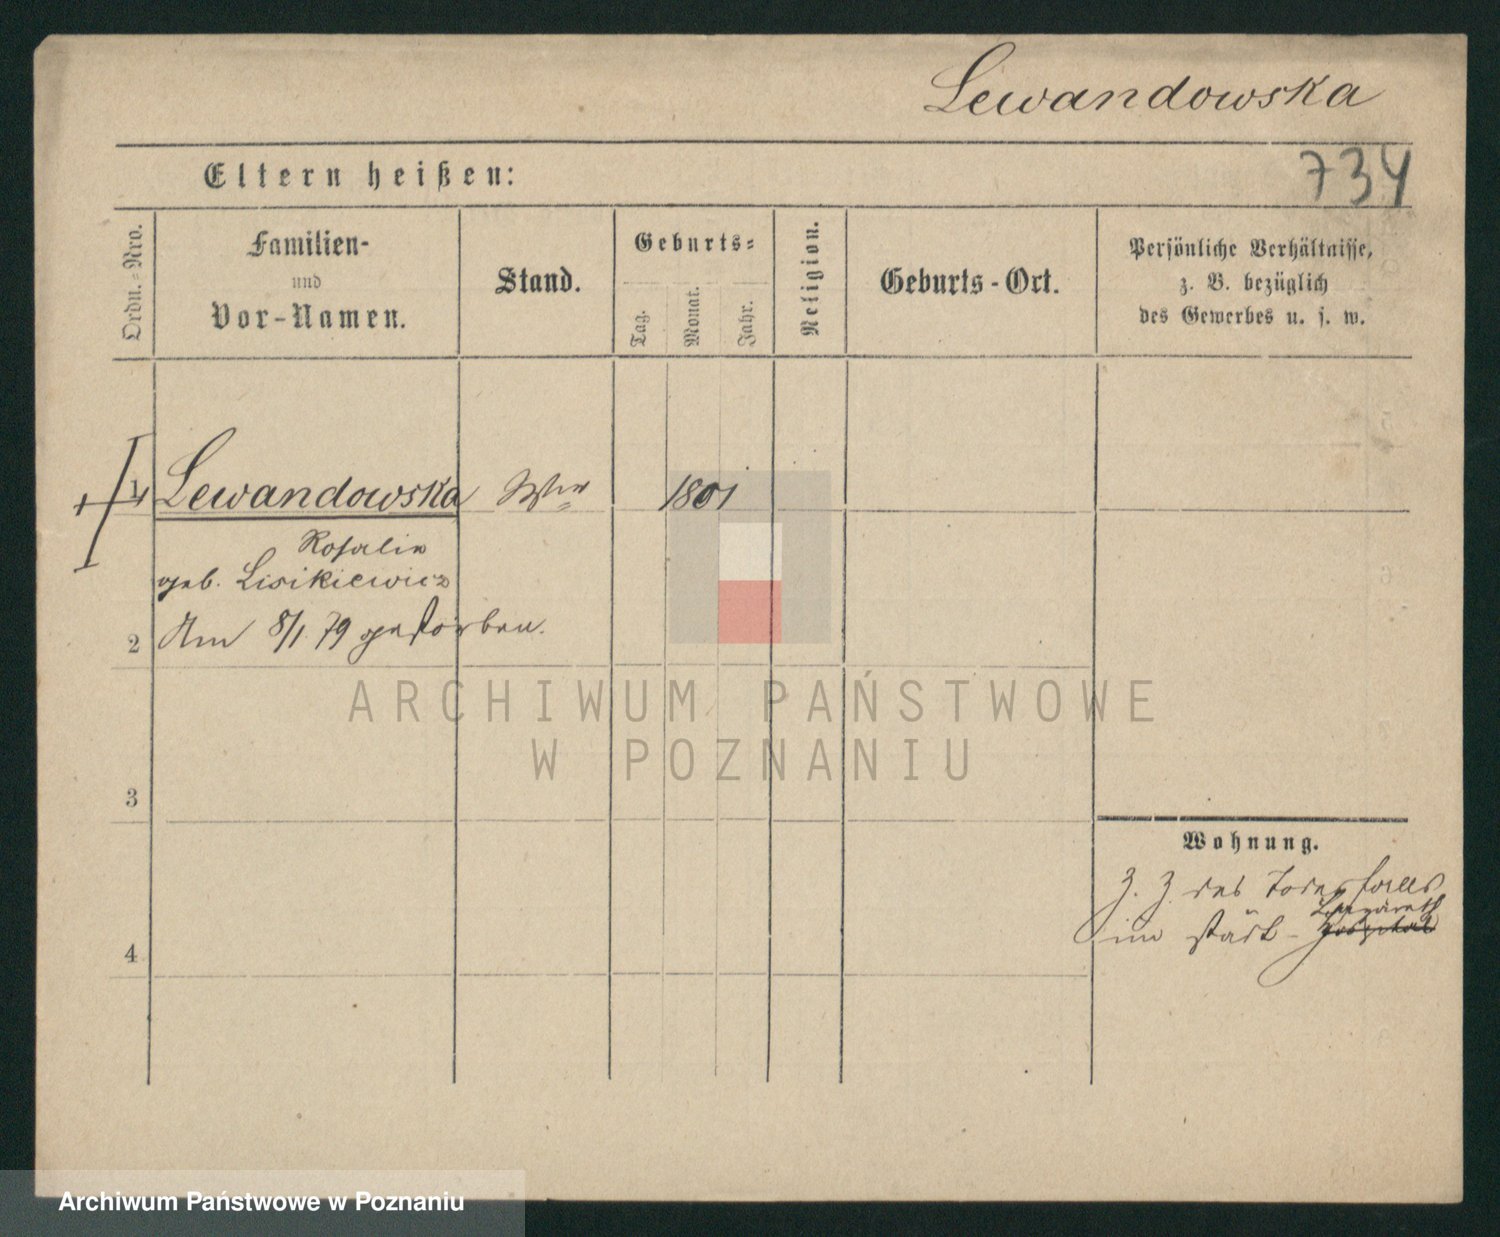 Lewandowska
734
Eltern heißen:
Ordn.-Nro.
Familien-
und
Vor-Namen.
Stand.
Geburts-
Tag.
Monat.
Jahr.
Religion.
Geburts-Ort.
Persönliche Verhältnisse,
z. B. bezüglich
des Gewerbes u. s. w.
1 Lewandowska Wwe 1801
Rosalie
geb. Lisikiewicz
2 Am 8/1 79 gestorben.
ARCHIWUM PAŃSTWOWE
W POZNANIU
3
Wohnung.
Z. Z. des Todesfalles
Lazareth
im städt- Hospital
4
Archiwum Państwowe w Poznaniu